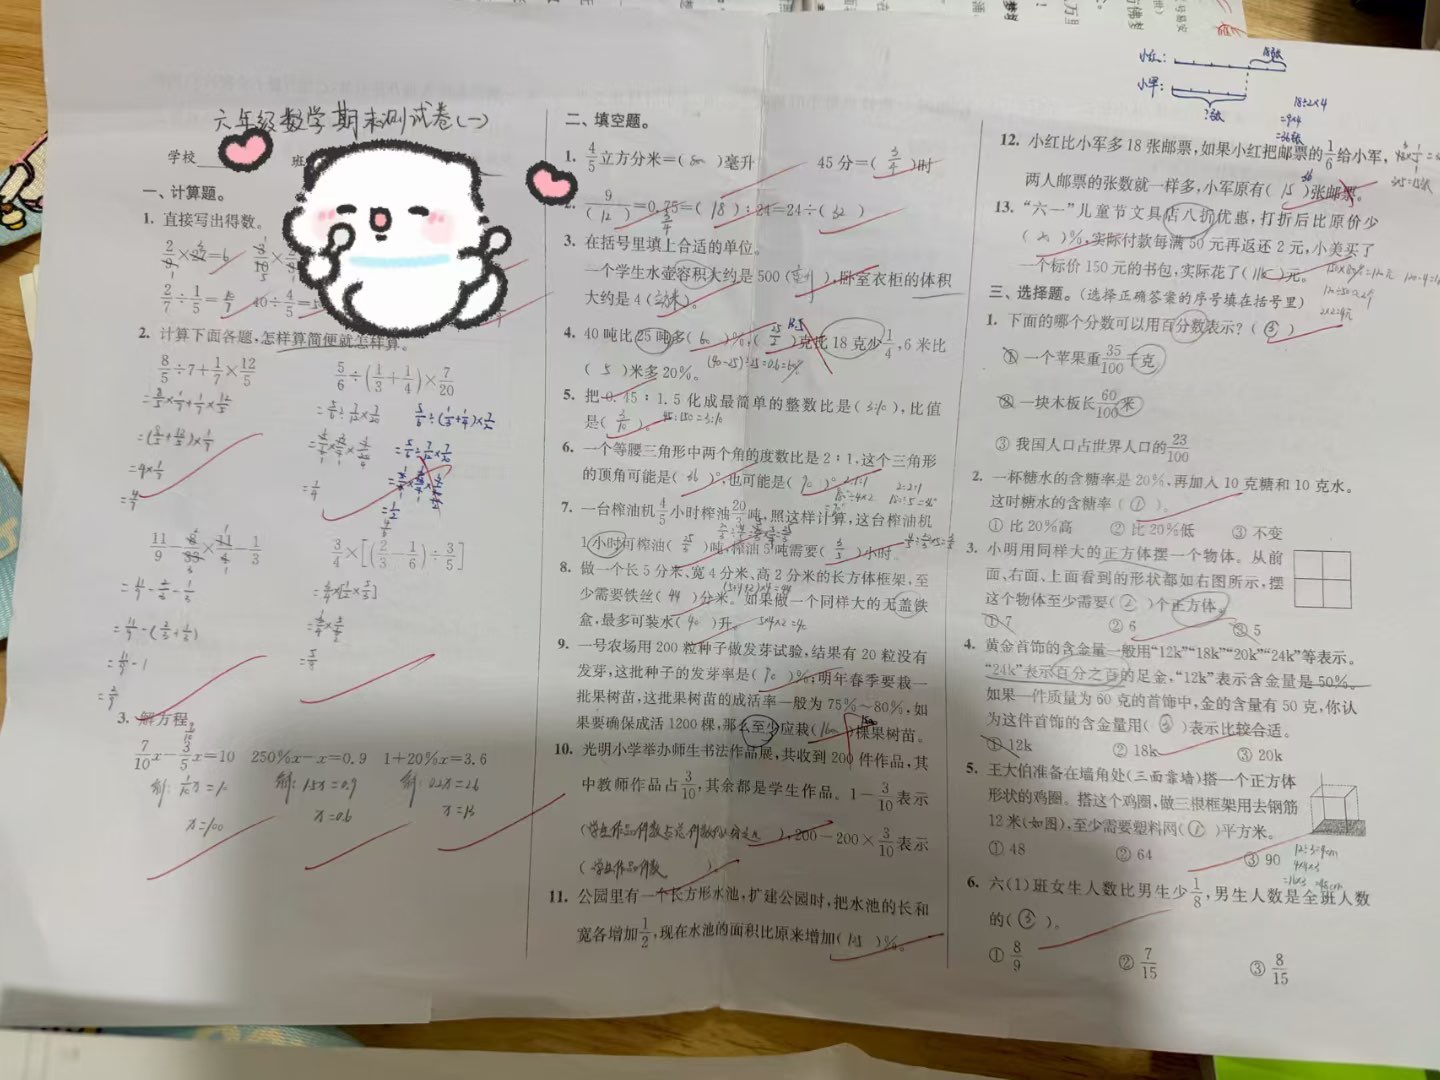 六年级数学期末测试卷(一)
学校
班
一、计算题。
1. 直接写出得数。
2/7÷1/5=
40÷4/5=
2. 计算下面各题,怎样算简便就怎样算。
8/5÷7+1/7×12/5
5/6÷(1/3+1/4)×7/20
=8/5×1/7+1/7×12/5
=(8/5+12/5)×1/7
=4×1/7
=4/7
3/4×[(2/3-1/6)÷3/5]
=11/9-(2/3+1/3)
=11/9-1
=2/9
3. 解方程。
7/10x-3/5x=10 250%x-x=0.9 1+20%x=3.6
x=100
x=0.6
x=13
二、填空题。
1. 4/5立方分米=(800)毫升 45分=(3/4)时
2. 9/(12)=0.75=(18):24=24÷(32)
3. 在括号里填上合适的单位。
一个学生水壶容积大约是500(毫升),卧室衣柜的体积
大约是4(立方米)。
4. 40吨比25吨多(60)%,( )克比18克少1/4,6米比
(5)米多20%。
5. 把0.45:1.5化成最简单的整数比是(3:10),比值
是(3/10)。
6. 一个等腰三角形中两个角的度数比是2:1,这个三角形
的顶角可能是(36)°,也可能是(90)°。
7. 一台榨油机4/5小时榨油20/3吨,照这样计算,这台榨油机
1小时可榨油(25/3)吨,榨油5吨需要(3/5)小时。
8. 做一个长5分米、宽4分米、高2分米的长方体框架,至
少需要铁丝(44)分米。如果做一个同样大的无盖铁
盒,最多可装水(40)升。 5×4×2=40
9. 一号农场用200粒种子做发芽试验,结果有20粒没有
发芽,这批种子的发芽率是(90)%;明年春季要栽一
批果树苗,这批果树苗的成活率一般为75%~80%,如
果要确保成活1200棵,那么至少应栽(1600)棵果树苗。
10. 光明小学举办师生书法作品展,共收到200件作品,其
中教师作品占3/10,其余都是学生作品。1-3/10表示
(学生作品件数占总件数的几分之几),200-200×3/10表示
(学生作品件数)。
11. 公园里有一个长方形水池,扩建公园时,把水池的长和
宽各增加1/2,现在水池的面积比原来增加(125)%。
小红:
18张
小军:
?张
18÷2×4
=9×4
=36张
12. 小红比小军多18张邮票,如果小红把邮票的1/6给小军,
两人邮票的张数就一样多,小军原有( )张邮票。
13. “六一”儿童节文具店八折优惠,打折后比原价少
(20)%,实际付款每满50元再返还2元,小美买了
一个标价150元的书包,实际花了(116)元。
三、选择题。(选择正确答案的序号填在括号里)
1. 下面的哪个分数可以用百分数表示?(③)
① 一个苹果重35/100千克
② 一块木板长60/100米
③ 我国人口占世界人口的23/100
2. 一杯糖水的含糖率是20%,再加入10克糖和10克水。
这时糖水的含糖率(①)。
① 比20%高 ② 比20%低 ③ 不变
3. 小明用同样大的正方体摆一个物体。从前
面、右面、上面看到的形状都如右图所示,摆
这个物体至少需要(②)个正方体。
① 7 ② 6 ③ 5
4. 黄金首饰的含金量一般用“12k”“18k”“20k”“24k”等表示。
“24k”表示百分之百的足金,“12k”表示含金量是50%。
如果一件质量为60克的首饰中,金的含量有50克,你认
为这件首饰的含金量用(③)表示比较合适。
① 12k ② 18k ③ 20k
5. 王大伯准备在墙角处(三面靠墙)搭一个正方体
形状的鸡圈。搭这个鸡圈,做三根框架用去钢筋
12米(如图),至少需要塑料网(①)平方米。
① 48 ② 64 ③ 90
6. 六(1)班女生人数比男生少1/8,男生人数是全班人数
的(③)。
① 8/9 ② 7/15 ③ 8/15